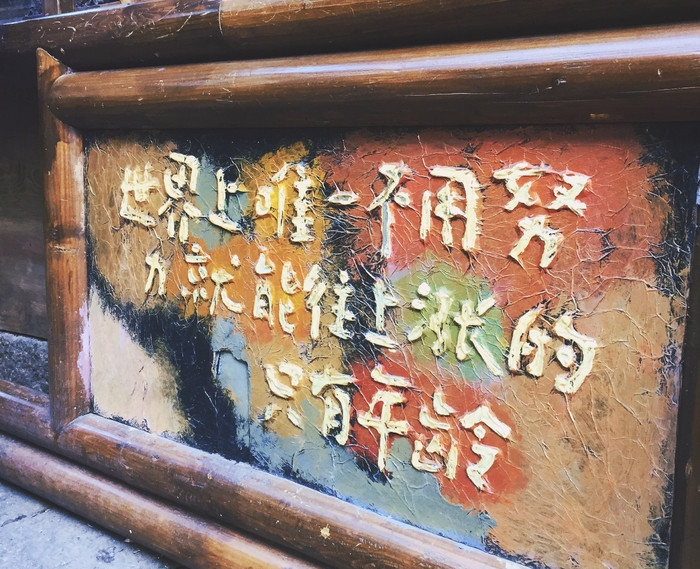 世界上唯一不用努
力就能往上涨的
只有年龄